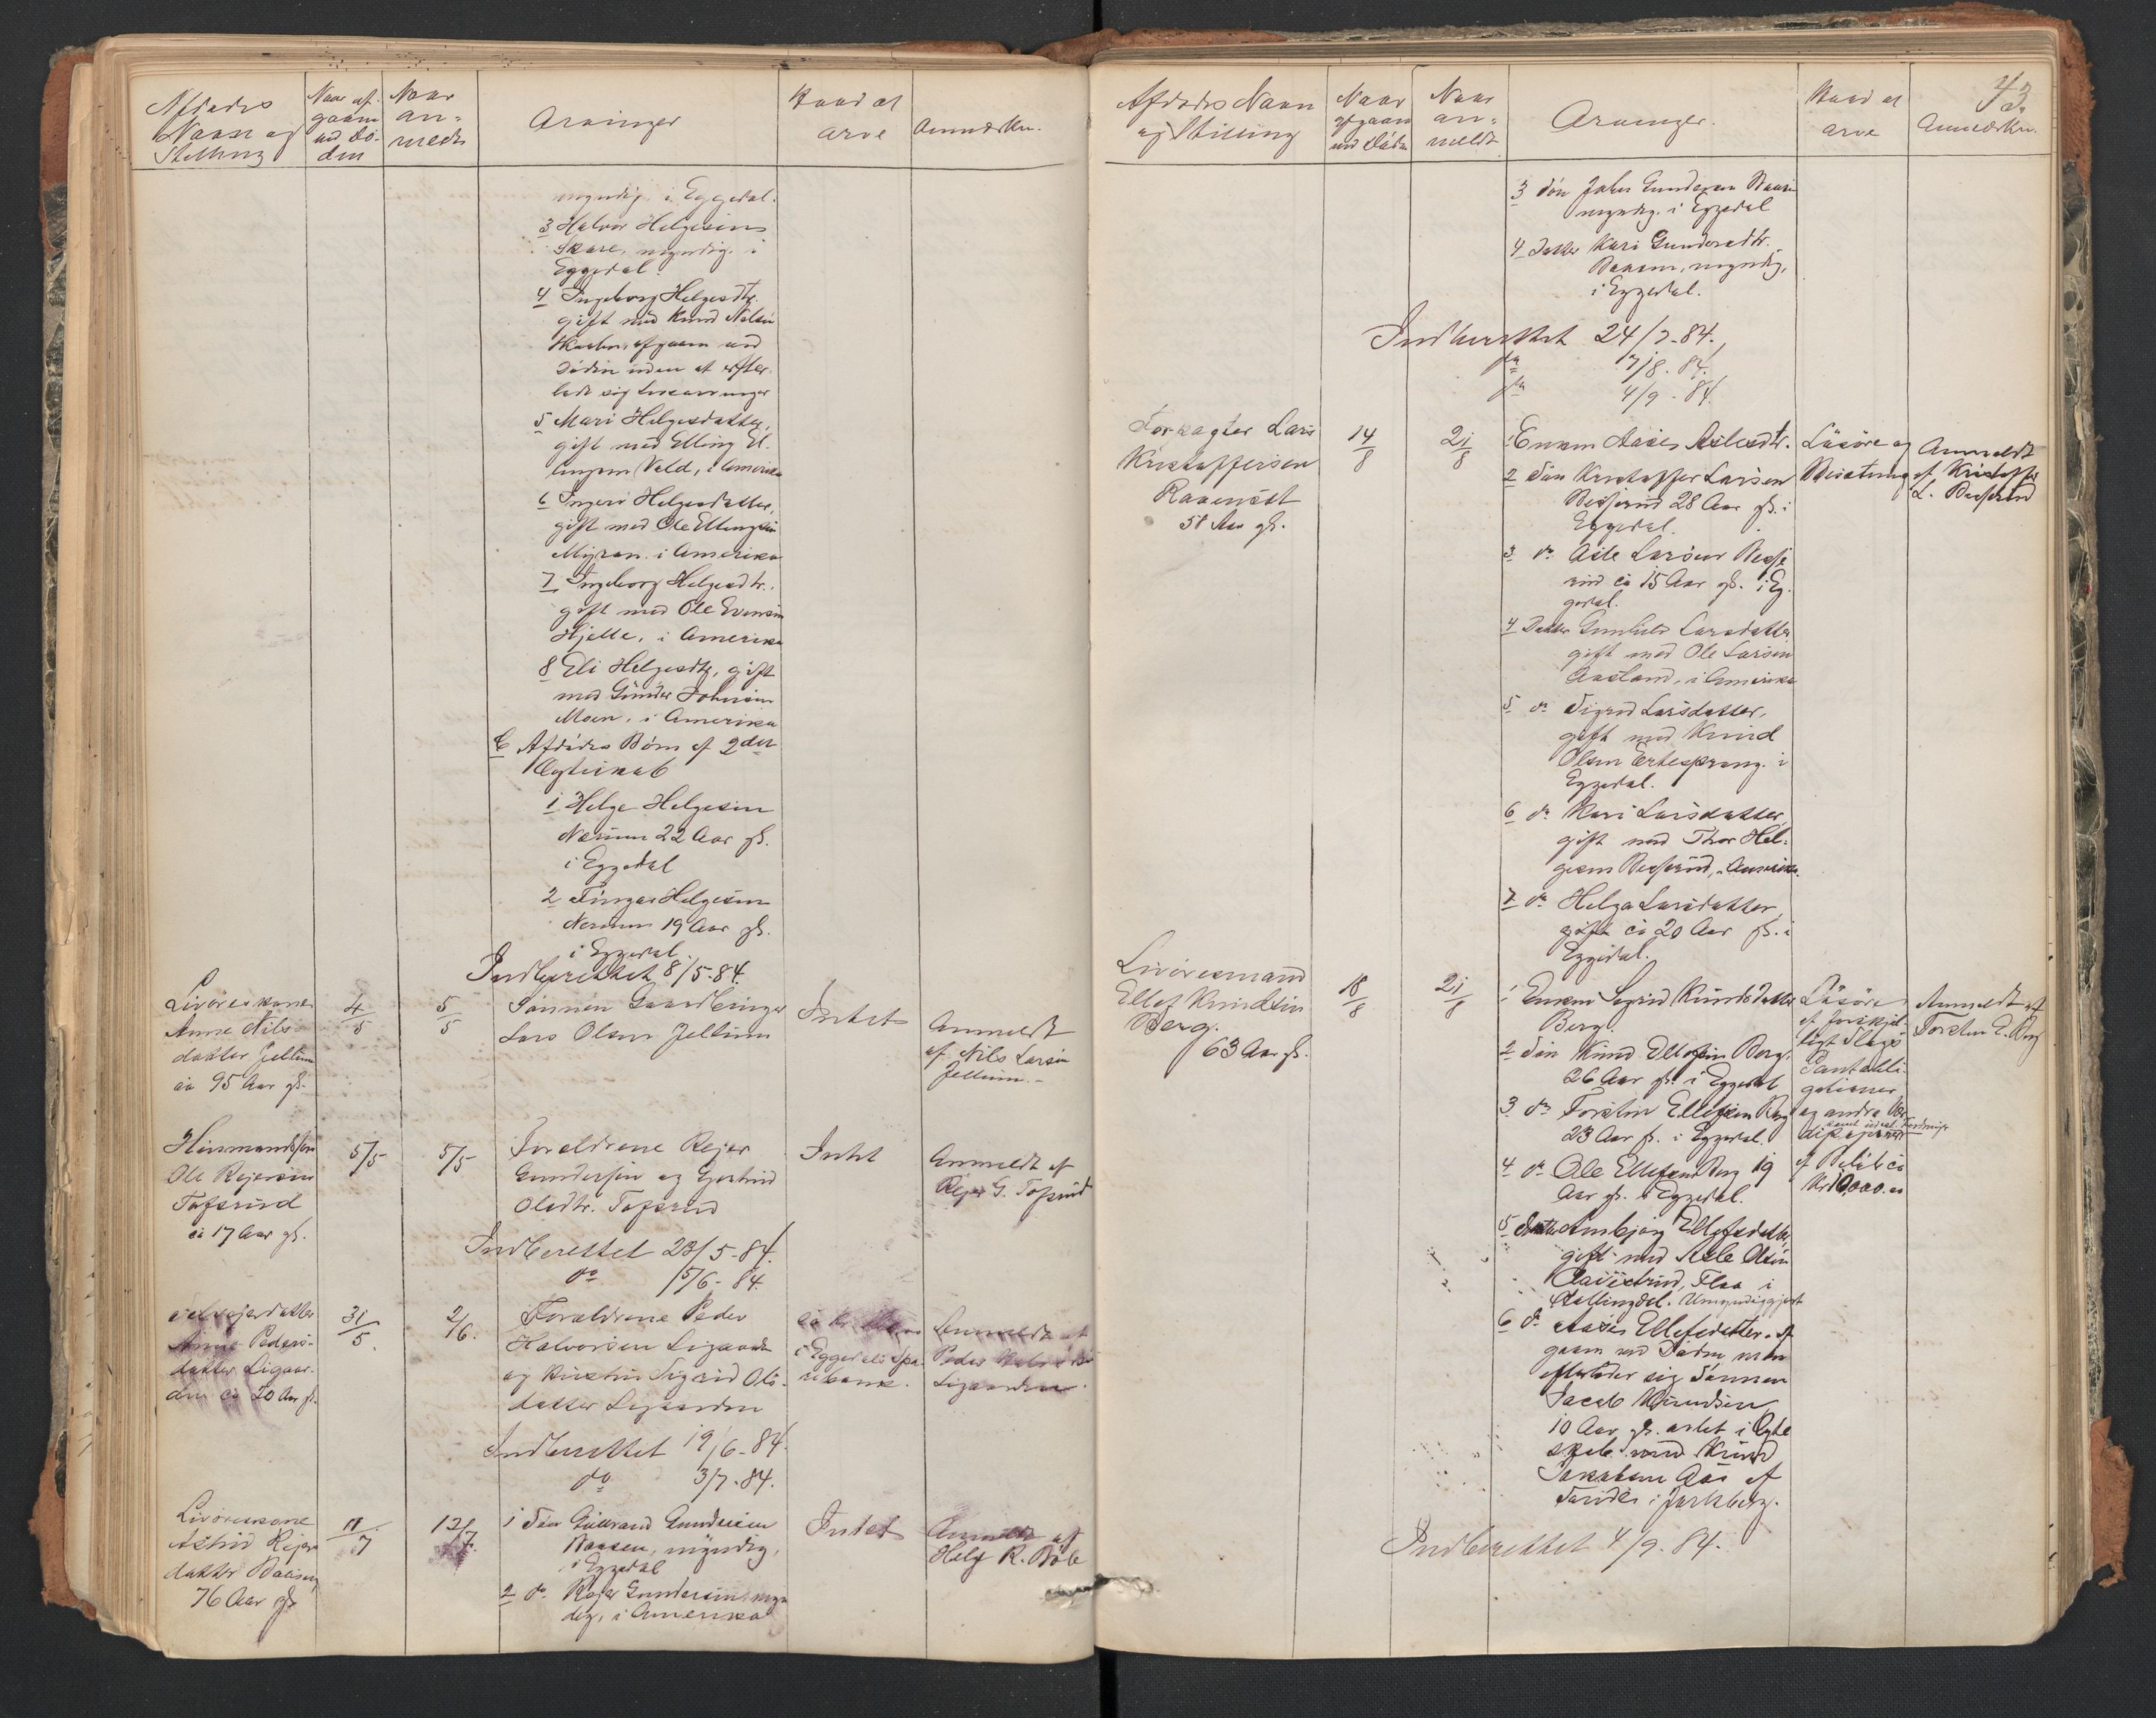 Afdødes
Navn og
Stilling
Naar af-
gaaen
ved Dø-
den
Naar
an-
meldt
Arvinger
Hvad at
arve
Anmærkn.
myndig i Eggedal.
3 Halvor Helgesen
Skare, myndig i
Eggedal
4 Ingeborg Helgesdtr.
gift med Knud Nilsen
afgaaen ved
Døden uden at efter-
lade sig Livsarvinger
5 Mari Helgesdatter,
gift med Elling El-
lingsen Vold, i Amerika
6 Ingeri Helgesdatter,
gift med Ole Ellingsen
Myran i Amerika
7 Ingeborg Helgesdtr.
gift med Ole Evensen
Hjelle, i Amerika
8 Eli Helgesdtr, gift
med Gunder Johnsen
Moen, i Amerika
C Afdødes Børn af 2det
Ægteskab
1 Helge Helgesen
Nerum 22 Aar gl.
i Eggedal
2 Helgesen
Nerum 19 Aar gl.
i Eggedal.
Indberettet 8/5-84.
Livøreskone
Anne Nils-
datter Jellum
ca 95 Aar gl.
4/5
5/5
Sønnen Gaardbruger
Lars Olsen Jellum
Intet
Anmeldt
af Nils Larsen
Jellum.-
Husmandssøn
Ole Rejersen
Tofsrud
ca 17 Aar gl.
5/5
5/5
Foreldrene Rejer
Gundersen og Gjertrud
Olsdtr. Tofsrud
Intet
Anmeldt af
Rejer G. Tofsrud
Indberettet 23/5-84.
do 5/6-84.
Selvejerdatter
Anne Peders-
datter Ligaar-
den ca 20 Aar gl.
31/5.
2/6.
Foreldrene Peder
Halvorsen Ligaarden
og Kirstin Sigrid Ols-
datter Ligaarden
ca Kr.
i Eggedals Spa-
rebank.
Anmeldt af
Peder Halvorsen
Ligaarden.
Indberettet 19/6-84.
do 3/7-84.
Livøreskone
Astrid Rejers-
datter Baasen
76 Aar gl
11/7
12/7.
1 Søn Guldbrand Gundersen
Baasen, myndig,
i Eggedal
2 do. Rejer Gundersen, myn-
dig, i Amerika
Intet
Anmeldt af
Helg. R. Bøle
43.
Afdødes Navn
og Stilling
Naar
afgaaen
ved Døden
Naar
an-
meldt
Arvinger.
Hvad at
arve
Anmærkn.
3 Søn John Gundersen Baasen
myndig. i Eggedal
4 Datter Kari Gundersdtr.
Baasen, myndig,
i Eggedal.
Indberettet 24/7-84.
do 7/8-84.
do 4/9-84.
Forpagter Lars
Kristoffersen
Ravnaast
58 Aar gl.
14/8
21/8
1 Enken Aase Aslesdtr.
2 Søn Kristoffer Larsen
Besserud 28 Aar gl. i
Eggedal.
3 do Asle Larsen Besse-
rud ca 15 Aar gl. i Eg-
gedal.
4 Datter Gunhild Larsdatter
gift med Ole Larsen
Aasland, i Amerika
5 do Sigrid Larsdatter,
gift med Knud
Olsen Ertesprang i
Eggedal.
6 do Kari Larsdatter,
gift med Thor Hel-
gesen Besserud, Amerika.
7 do Helga Larsdatter
gift ca 20 Aar gl. i
Eggedal.
Løsøre og
Besætning
Anmeldt
af Kristoffer
L. Besserud
Livøresmand
Ellef Knudsen
Berg.
63 Aar gl.
18/8
21/8
1 Enken Sigrid Knudsdatter
Berg.
2 Søn Knud Ellefsen Berg,
26 Aar gl. i Eggedal
3 do Torsten Ellefsen Berg
23 Aar gl. i Eggedal.
4 do Ole Ellefsen Berg 19
Aar gl. i Eggedal.
5 Datter Ambjørg Ellefsdatter,
gift med Asle Olsen
Flaa i
Hallingdal. Umyndiggjort
6 do Aase Ellefsdatter, af-
gaaen ved Døden men
efterlader sig Sønnen
Jacob Knudsen
10 Aar gl. avlet i Ægte-
skab med Knud
Jakobsen Aas af
i Jarlsberg.
Løsøre
af forskjel-
ligt Slags
Pantobli-
gationer
og andre Vær-
dipapirer
samt udest. Fordringer
af Beløb ca
Kr 10,000.00
Anmeldt af
Torsten E. Berg
Indberettet 4/9. 84.